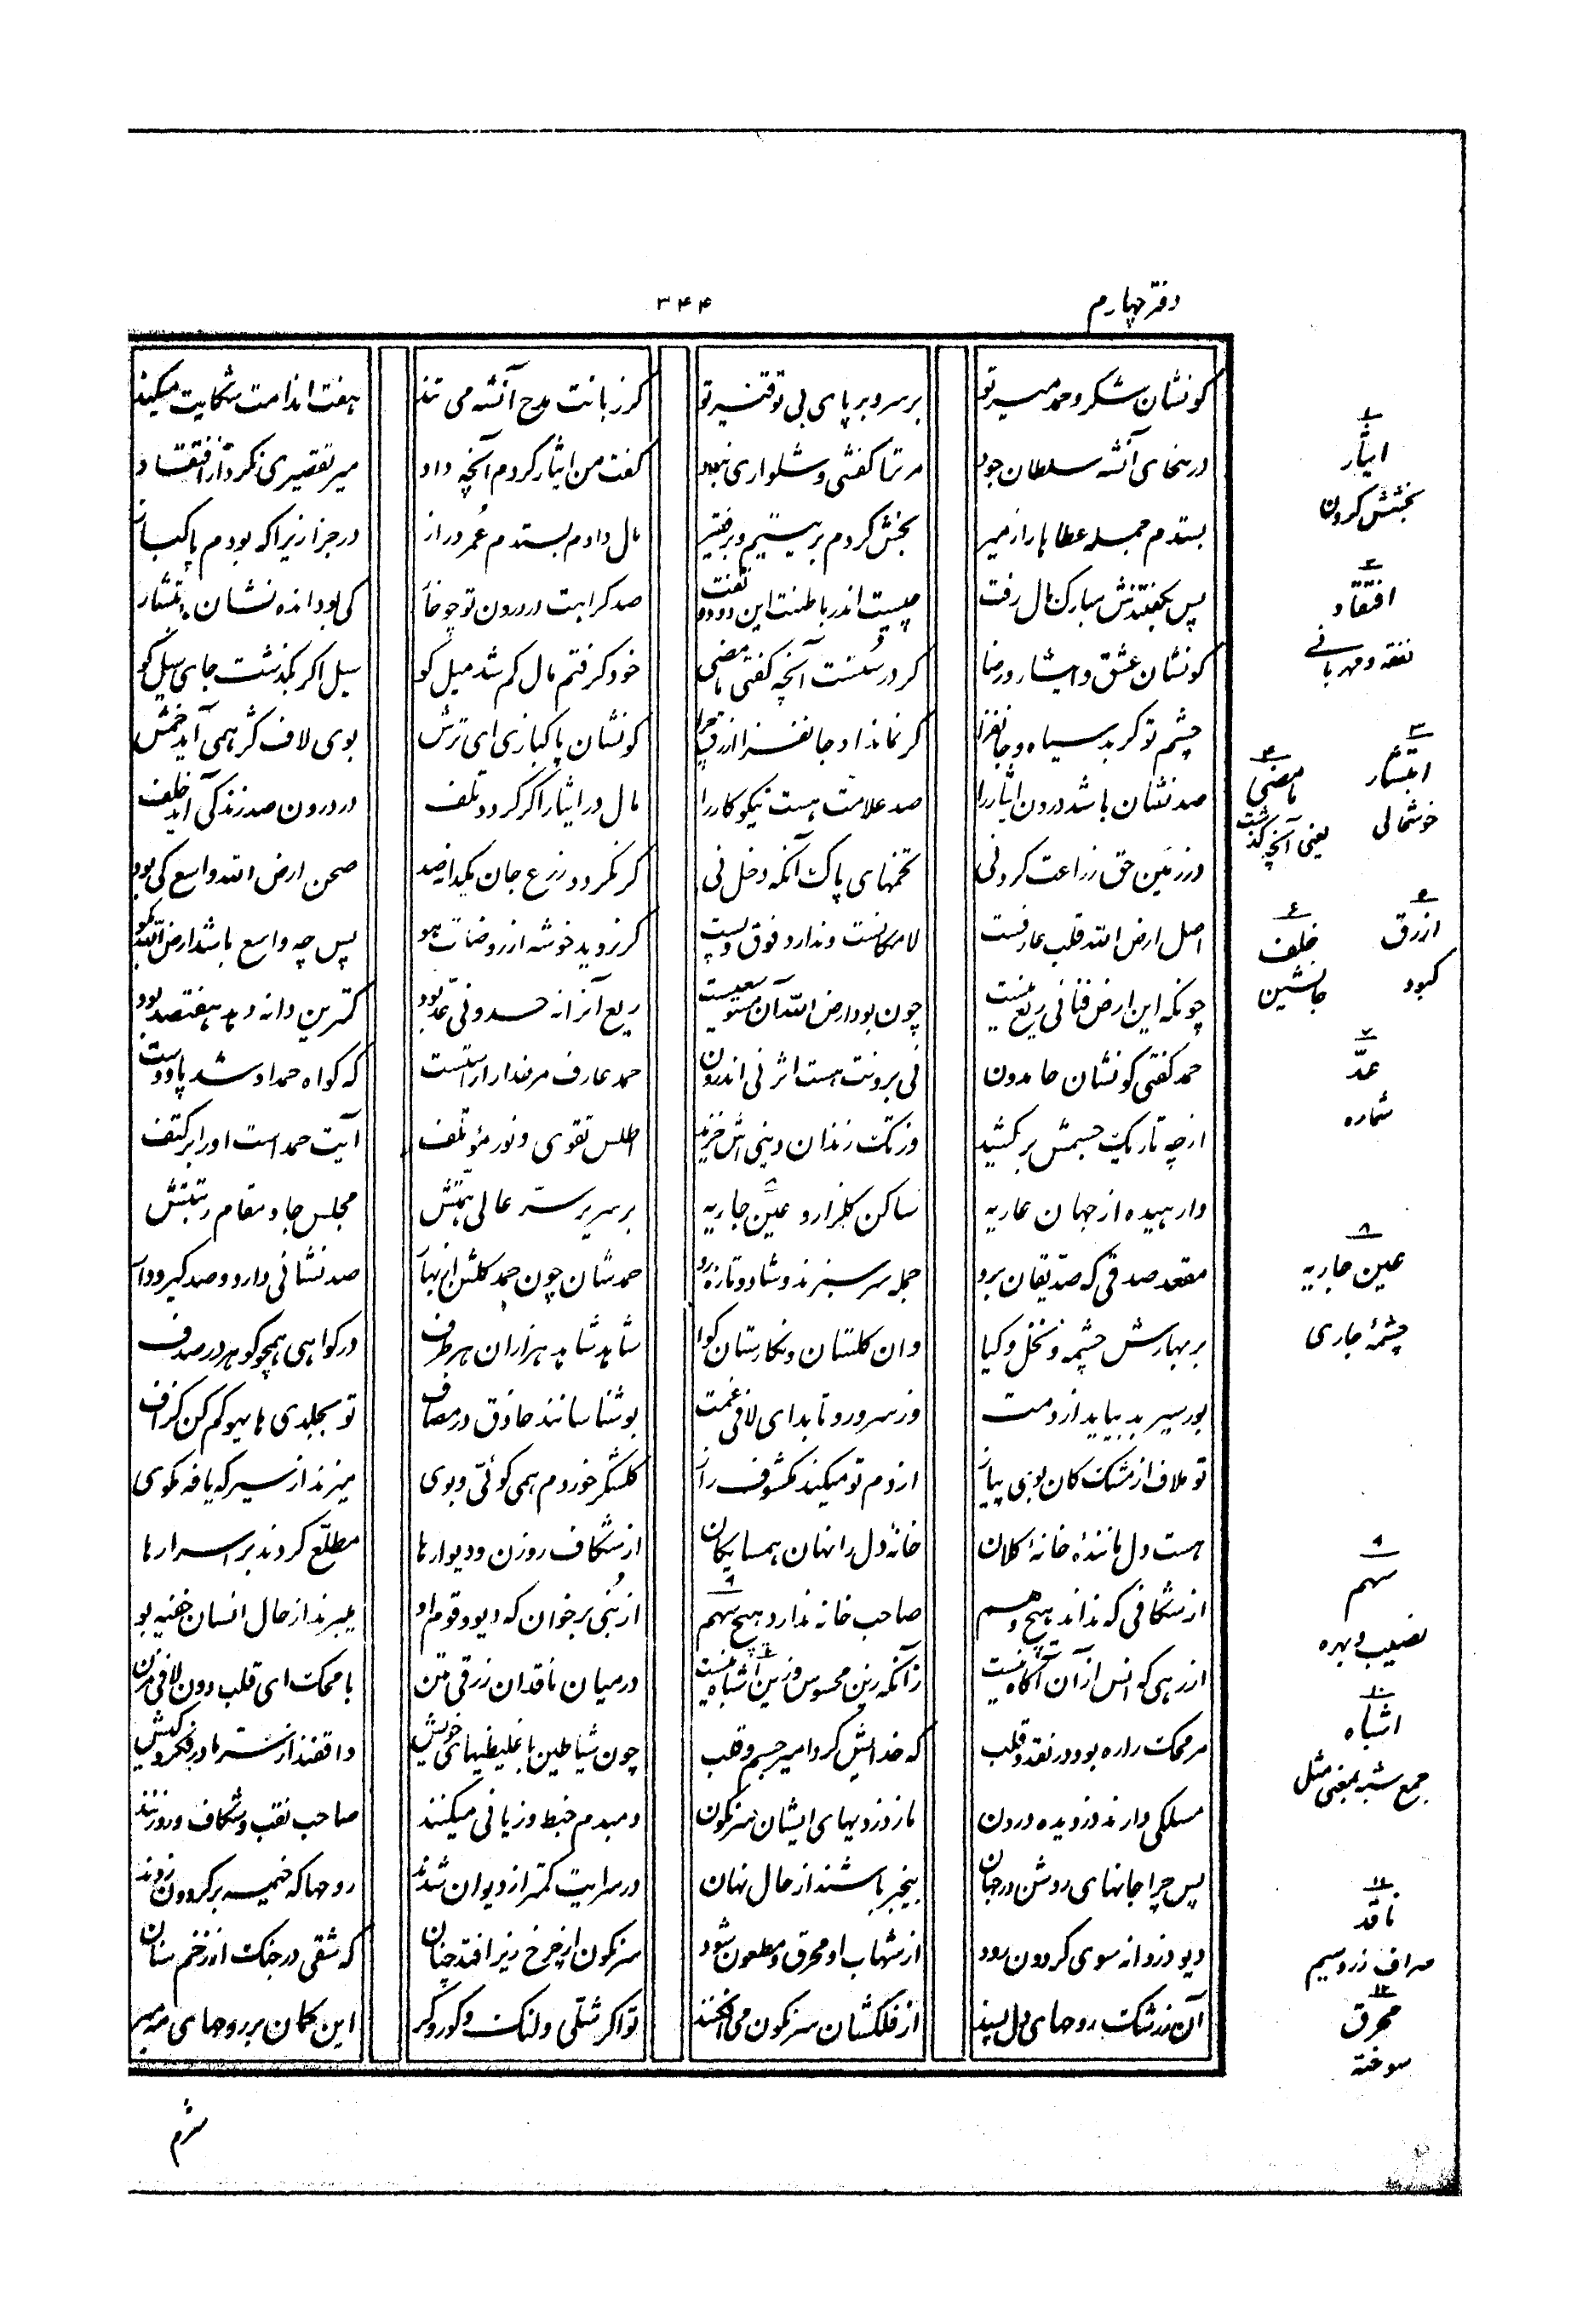 دفتر چهارم
۳۴۴
کو نشان شکر و حمد میر تو
بر سر و بر پای بی توفیر تو
گر زبانت مدح آن شه می‌تند
هفت اندامت شکایت میکند
در سخای آن شه سلطان جود
مر ترا کفشی و شلواری نبود
گفت من ایثار کردم آنچه داد
میر تقصیری نکرد از افتقاد
بستدم جمله عطاها را ز میر
بخش کردم بر یتیم و بر فقیر
مال دادم بستدم عمر دراز
در جزا زیرا که بودم پاکباز
پس بگفتندش مبارک مال رفت
چیست اندر باطنت این دود و تفت
صد کراهت در درون تو چو خار
کی بود انده نشان ابتشار
کو نشان عشق و ایثار و رضا
گر درستست آنچه گفتی ما مضی
خود گرفتم مال گم شد میل کو
سیل اگر بگذشت جای سیل کو
چشم تو گر بد سیاه و جانفزا
گر نماند او جانفزا ازرق چرا
کو نشان پاکبازی ای ترش
بوی لاف کژ همی آید خمش
صد نشان باشد درون ایثار را
صد علامت هست نیکو کار را
مال در ایثار اگر گردد تلف
در درون صد زندگی آید خلف
در زمین حق زراعت کردنی
تخمهای پاک آنگه دخل نی
گر نگردد زرع جان یکدانه صد
صحن ارض الله واسع کی بود
اصل ارض الله قلب عارفست
لامکانست و ندارد فوق و پست
گر نروید خوشه از روضات هو
پس چه واسع باشد ارض الله بگو
چونکه این ارض فنا بی ریع نیست
چون بود ارض الله آن مستوسعیست
ریع آنرا نه حد و نی عد بود
کمترین دانه دهد هفتصد بود
حمد گفتی کو نشان حامدون
نی برونت هست اثر نی اندرون
حمد عارف مر خدا را راستست
که گواه حمد او شد پا و دست
از چه تاریک جسمش بر کشید
وز تک زندان دنیی‌اش خرید
اطلس تقوی و نور مؤتلف
آیت حمد است او را بر کتف
وارهیده از جهان عاریه
ساکن گلزار و عین جاریه
بر سریر سر عالی همتش
مجلس و جاه و مقام و رتبتش
مقعد صدقی که صدیقان برو
جمله سر سبزند و شاد و تازه رو
حمدشان چون حمد گلشن از بهار
صد نشانی دارد و صد گیر و دار
بر بهارش چشمه و نخل و گیا
وان گلستان و نگارستان گوا
شاهد شاهد هزاران هر طرف
در گواهی همچو گوهر در صدف
بوی سیر بد بیاید از دمت
وز سر و رو تابد ای لافی غمت
بو شناسانند حاذق در مصاف
تو بجلدی های هو کم کن گزاف
تو ملاف از مشک کان بوی پیاز
از دم تو میکند مکشوف راز
گلشکر خوردم همی گوئی و بوی
میزند از سیر که یافه مگوی
هست دل مانندهٔ خانهٔ کلان
خانهٔ دل را نهان همسایگان
از شکاف روزن و دیوارها
مطلع گردند بر اسرارها
از شکافی که نداند هیچ وهم
صاحب خانه ندارد هیچ سهم
از نبی برخوان که دیو و قوم او
میبرند از حال انسان خفیه بو
از رهی که انس از آن آگاه نیست
زآنکه زین محسوس و زین اشباه نیست
در میان ناقدان زرقی متن
با محک ای قلب دون لافی مزن
مر محک را ره بود در نقد و قلب
که خدایش کرد امیر جسم و قلب
چون شیاطین با غلیظیهای خویش
واقفند از سر ما در فکر و کیش
مسلکی دارند دزدیده درون
ما ز دزدیهای ایشان سرنگون
دمبدم خبط و زیانی میکنند
صاحب نقب و شکاف و روزنند
پس چرا جانهای روشن در جهان
بیخبر باشند از حال نهان
در سرایت کمتر از دیوان شدند
روحها که خیمه بر گردون زدند
دیو دزدانه سوی گردون رود
از شهاب او محرق و مطعون شود
سرنگون از چرخ زیر افتد چنان
که شقی در جنگ از زخم سنان
آن ز رشک روحهای دل پسند
از فلکشان سرنگون می‌افکنند
تو اگر شلی و لنگ و کور و کر
این گمان بر روحهای مه مبر
شرم
۱
ایثار
بخشش کردن
۲
افتقاد
تفقد و مهربانی
۳
ابتشار
خوشحالی
۴
ما مضی
یعنی آنچه گذشت
۵
ازرق
کبود
۶
خلف
جانشین
۷
عدّ
شماره
۸
عین جاریه
چشمهٔ جاری
۹
سهم
نصیب و بهره
۱۰
اشباه
جمع شبه بمعنی مثل
۱۱
ناقد
صراف زر و سیم
۱۲
محرق
سوخته